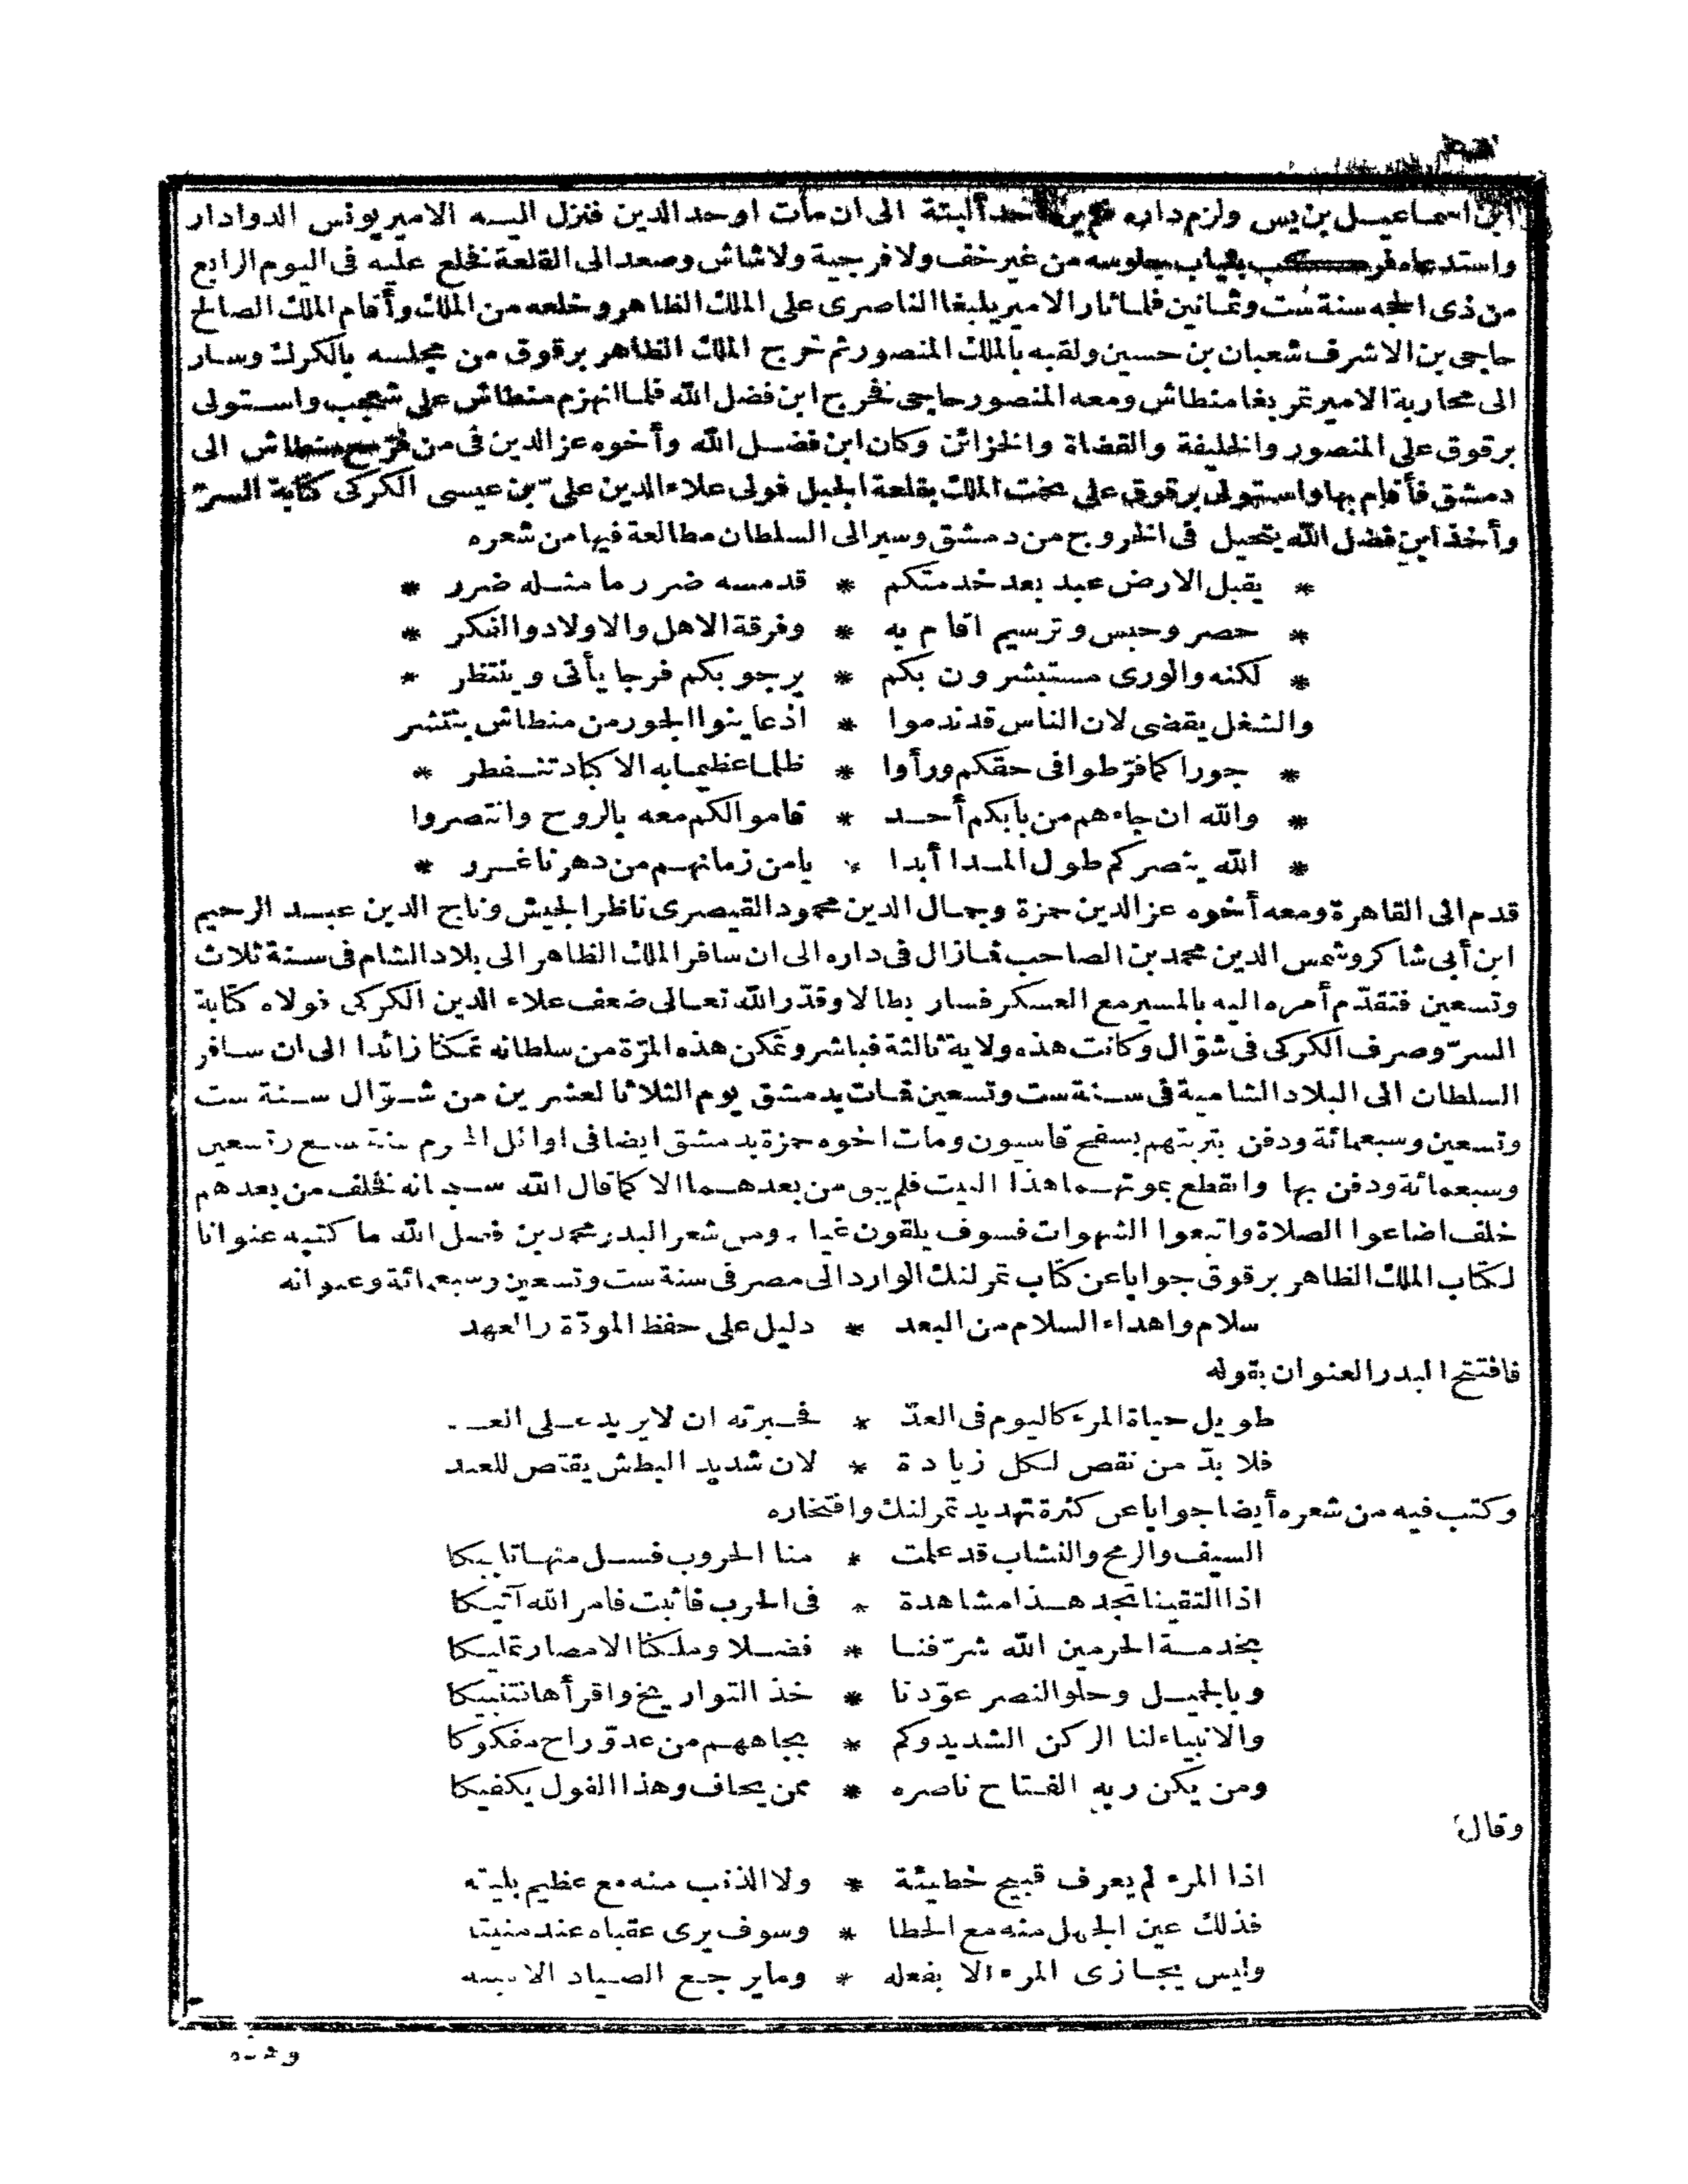 ابن اسماعيل بن يس ولزم داره فلم ير أحد البتة الى ان مات اوحد الدين فنزل اليه الامير يونس الدوادار
واستدعاه فركب بثياب جلوسه من غير خف ولا فرجية ولا شاش وصعد الى القلعة نخلع عليه فى اليوم الرابع
من ذى الحجه سنة ست وثمانين فلما ثار الامير يلبغا الناصرى على الملك الظاهر وخلعه من الملك وأقام الملك الصالح
حاجى بن الاشرف شعبان بن حسين ولقبه بالملك المنصور ثم خرج الملك الظاهر برقوق من محبسه بالكرك وسار
الى محاربة الامير تمربغا منطاش ومعه المنصور حاجى نخرج ابن فضل الله فلما انهزم منطاش على شقحب واستولى
برقوق على المنصور والخليفة والقضاة والخزائن وكان ابن فضل الله وأخوه عز الدين فى من فرّ مع منطاش الى
دمشق فأقام بها واستولى برقوق على تخت الملك بقلعة الجبل فولى علاء الدين علىّ بن عيسى الكركى كتابة السرّ
وأخذ ابن فضل الله يتحيل فى الخروج من دمشق وسير الى السلطان مطالعة فيها من شعره
* يقبل الارض عبد بعد خدمتكم * قد مسه ضرر ما مثله ضرر *
* حصر وحبس وترسيم اقام به * وفرقة الاهل والاولاد والفكر *
* لكنه والورى مستبشرون بكم * يرجو بكم فرجا يأتى وينتظر *
والشغل يقضى لان الناس قد ندموا * اذ عاينوا الجور من منطاش ينتشر
* جورا كما فرّطوا فى حقكم ورأوا * ظلما عظيما به الاكباد تنفطر *
* والله ان جاءهم من بابكم أحد * قاموا لكم معه بالروح وانتصروا
* الله ينصركم طول المدا أبدا * يا من زمانهم من دهرنا غرر *
قدم الى القاهرة ومعه أخوه عز الدين حمزة وجمال الدين محمود القيصرى ناظر الجيش وتاج الدين عبد الرحيم
ابن أبى شاكر وشمس الدين محمد بن الصاحب فما زال فى داره الى ان سافر الملك الظاهر الى بلاد الشام فى سنة ثلاث
وتسعين فتقدّم أمره اليه بالمسير مع العسكر فسار بطالا وقدّر الله تعالى ضعف علاء الدين الكركى فولاه كتابة
السرّ وصرف الكركى فى شوّال وكانت هذه ولاية ثالثة فباشر وتمكن هذه المرّة من سلطانه تمكنا زائدا الى ان سافر
السلطان الى البلاد الشامية فى سنة ست وتسعين فمات بدمشق يوم الثلاثا لعشرين من شوّال سنة ست
وتسعين وسبعمائة ودفن بتربتهم بسفح قاسيون ومات اخوه حمزة بدمشق ايضا فى اوائل المحرم سنة سبع وتسعين
وسبعمائة ودفن بها وانقطع بموتهما هذا البيت فلم يبق من بعدهما الا كما قال الله سبحانه نخلف من بعدهم
خلف اضاعوا الصلاة واتبعوا الشهوات فسوف يلقون غيا . ومن شعر البدر محمد بن فضل الله ما كتبه عنوانا
لكتاب الملك الظاهر برقوق جوابا عن كتاب تمرلنك الوارد الى مصر فى سنة ست وتسعين وسبعمائة وعنوانه
سلام واهداء السلام من البعد * دليل على حفظ المودّة والعهد
فافتتح البدر العنوان بقوله
طويل حياة المرء كاليوم فى العدّ * نخبرته ان لا يريد على
فلا بدّ من نقص لكل زيادة * لان شديد البطش يقتص للعبد
وكتب فيه من شعره أيضا جوابا عن كثرة تهديد تمرلنك وافتخاره
السيف والرمح والنشاب قد علمت * منا الحروب فسل منها تلبيكا
اذا التقينا تجد هذا مشاهدة * فى الحرب فاثبت فامر الله آتيكا
بخدمة الحرمين الله شرّفنا * فضلا وملكنا الامصار تمليكا
وبالجميل وحلو النصر عوّدنا * خذ التواريخ واقرأها فتنبيكا
والانبياء لنا الركن الشديد وكم * بجاههم من عدوّ راح مفكوكا
ومن يكن ربه الفتاح ناصره * ممن يخاف وهذا القول يكفيكا
وقال
اذا المرء لم يعرف قبيح خطيئة * ولا الذنب منه مع عظيم بليته
فذلك عين الجهل منه مع الخطا * وسوف يرى عقباه عند منيته
وليس يجازى المرء الا بفعله * وما يرجع الصياد الا